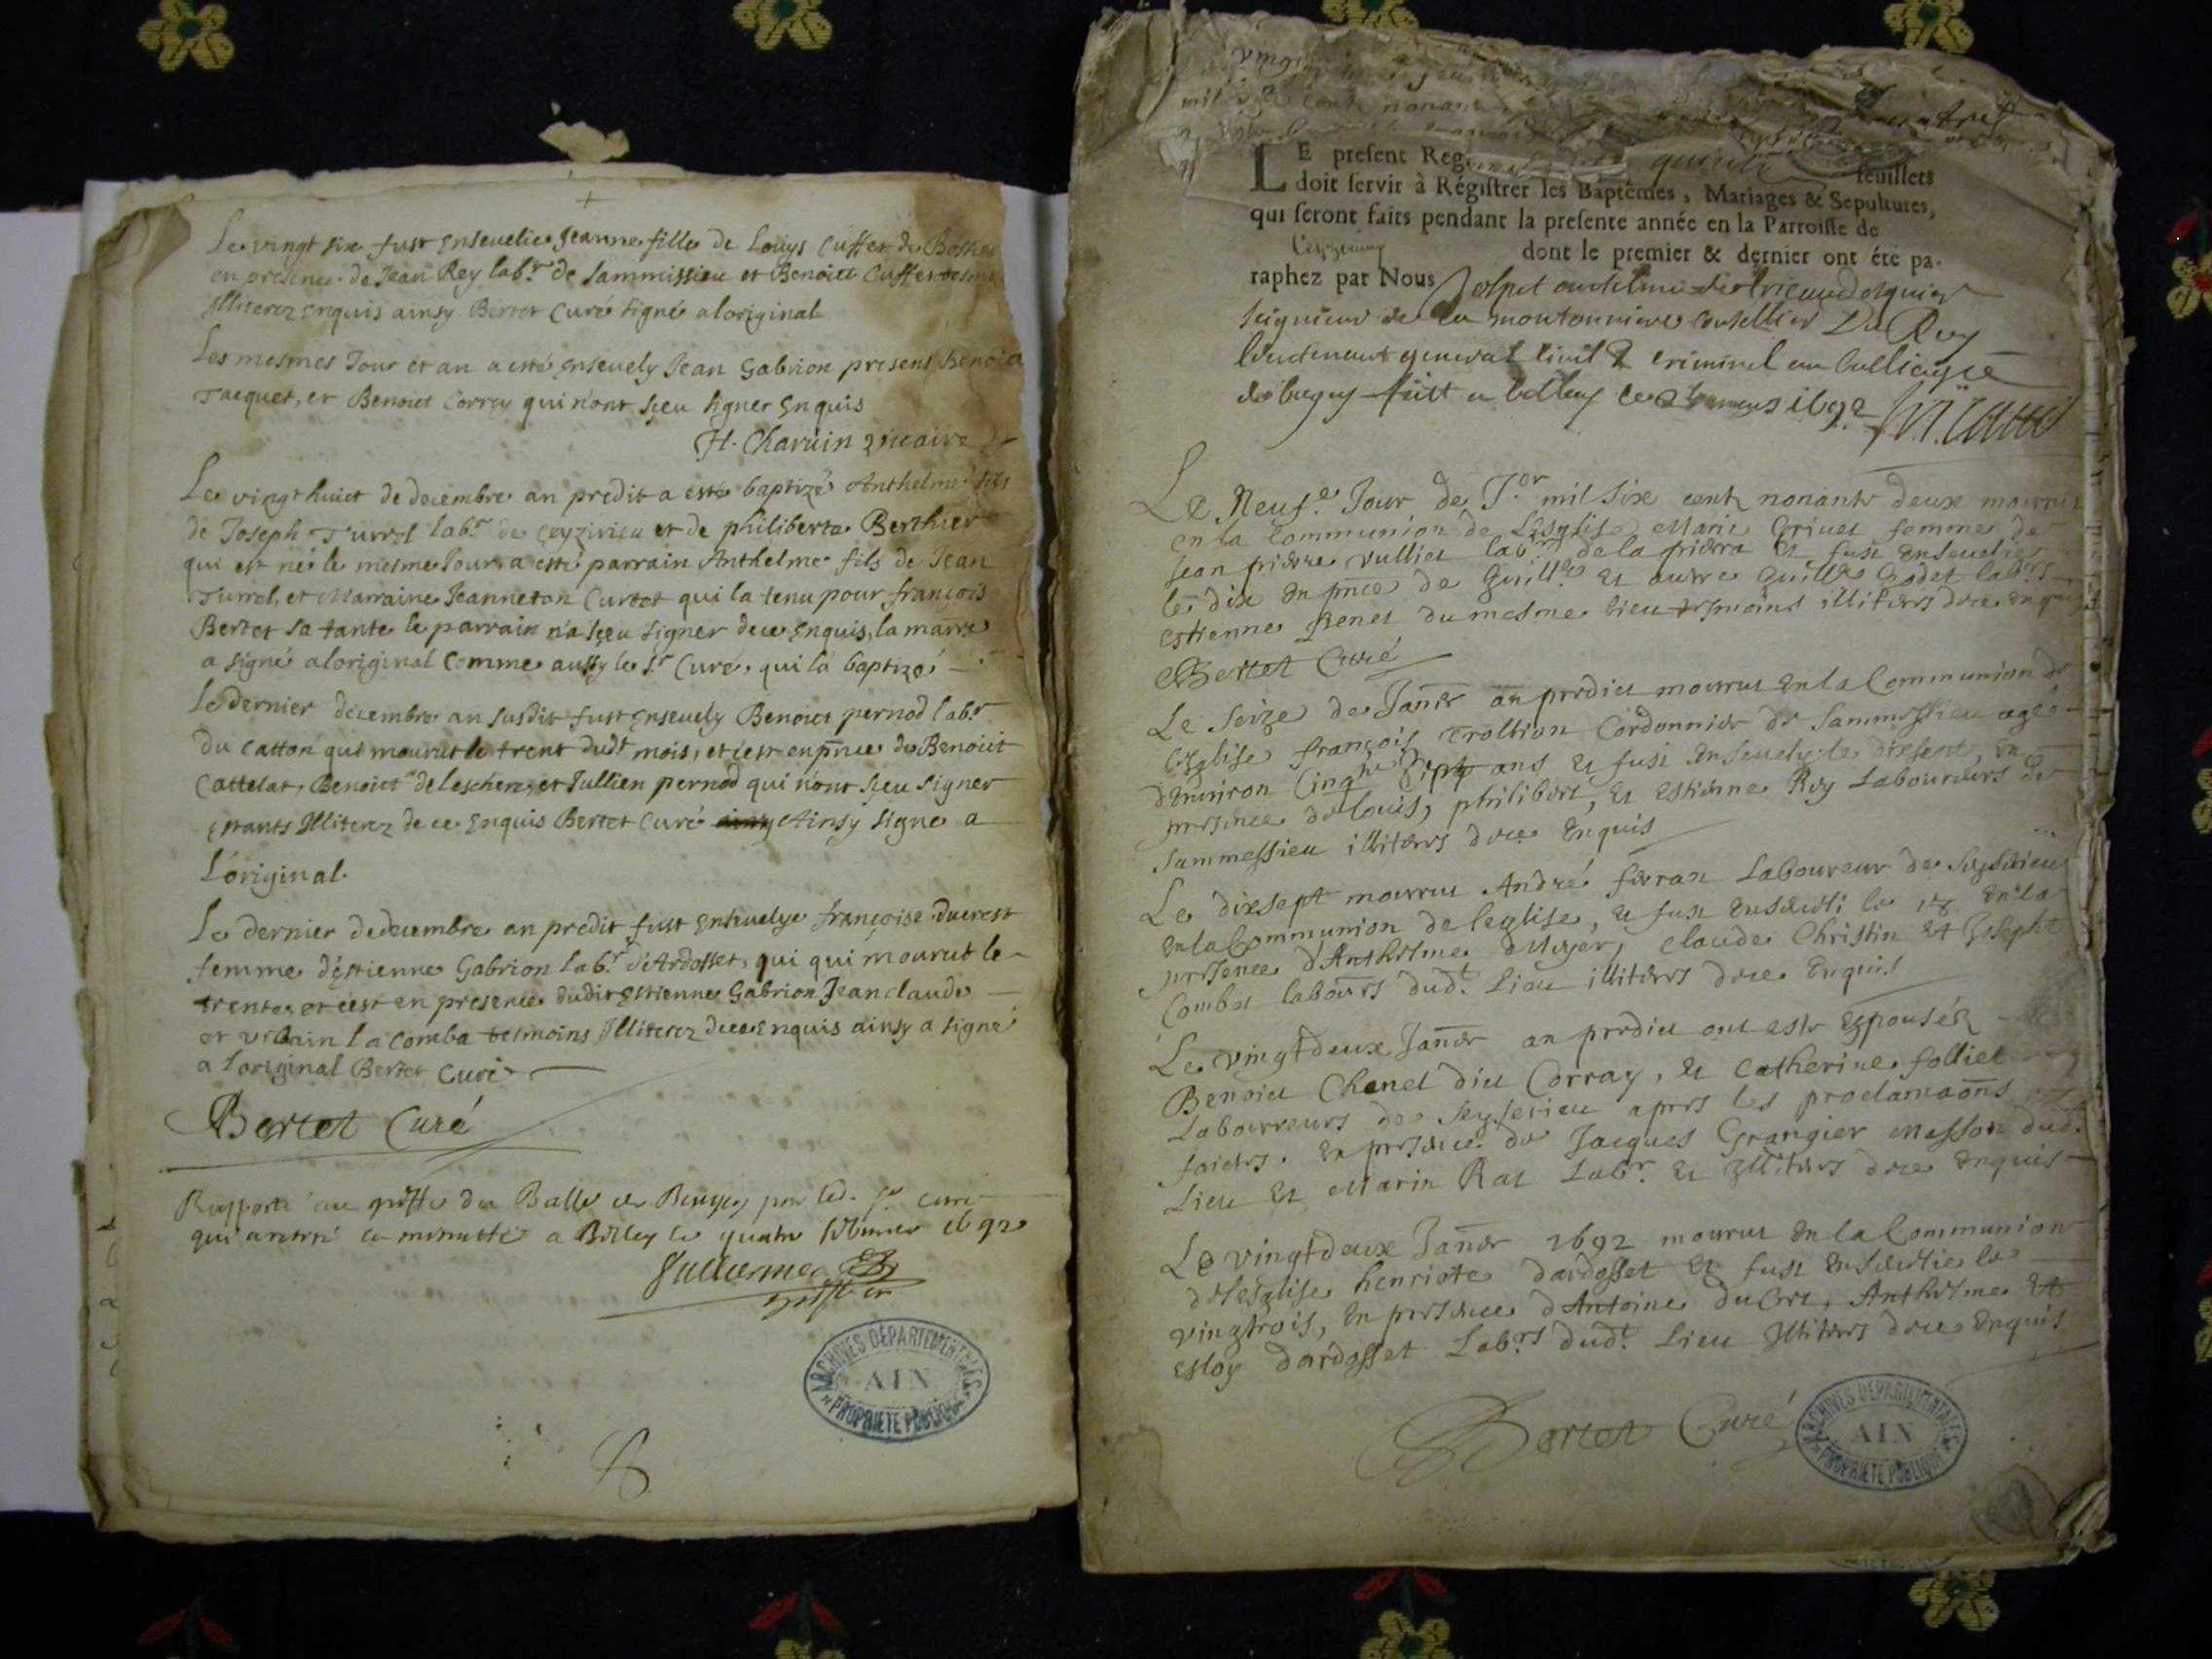 Le vingt six fust ensevelie Jeanne fille de Louys Cuffet de
en presence de Jean Rey lab.r de Sammissieu et Benoict Cuffet
Illiterez enquis ainsy Bertet Curé signé a loriginal
Les mesmes Jour et an a esté ensevely Jean Gabrion presens Benoict
Jacquet, et Benoict Corray qui n'ont sçeu signer Enquis
H. Charuin vicaire
Le vingt huict de decembre an predit a esté baptizé Anthelme fils
de Joseph Turrel lab.r de Ceyzirieu et de philiberte Berthier
qui est né le mesme Jour, a esté parrain Anthelme fils de Jean
Turrel, et Marraine Jeanneton Curtet qui la tenu pour françois
Bertet sa tante le parrain n'a sçeu signer de ce Enquis, la marre
a signé a loriginal Comme aussy le S.r Curé, qui la baptizé
Le dernier decembre an susdit fust ensevely Benoict pernod lab.r
du Catton qui mourut le trent dud.t mois, et c'est en pnce de Benoict
Cattelat, Benoict delescherz, et Jullien pernod qui n'ont sçeu signer
estants Illiterez de ce Enquis Bertet Curé ainsy Ainsy signé a
L'original.
Le dernier de decembre an predit fust ensevelye françoise ducrest
femme d'estienne Gabrion lab.r d'Ardosset, qui qui mourut le
trente, et c'est en presence dudit estienne Gabrion Jean claude
et vrbain la Comba tesmoins Illiterez de ce enquis ainsy a signé
a loriginal Bertet Curé
Bertet Curé
Rapporté au greffe du Balle de Bugey par led. S.r curé
qui a retiré la minutte a Belley le quatre 1692
greffier
ARCHIVES DEPARTEMENTALES
AIN
PROPRIETE PUBLIQUE
vingt
mil six cent nonante
LE present Reg quinze feuillets
doit servir à Régistrer les Baptêmes, Mariages & Sepultures,
qui seront faits pendant la presente année en la Parroisse de
dont le premier & dernier ont été pa-
raphez par Nous
seigneur de la moutonniere conseillier Du Roy
lieutenant general civil & criminel au balliage
de bugey fait a belley ce 1692
Le Neuf.e Jour de J.er mil six cent nonante deux mourut
en la Communion de Lesglise Marie Grinet femme de
Jean pierre vulliet lab.r de la pierre et fust ensevelie
le dix en pnce de Guill.e et autre Guill.e Godet lab.rs
estienne Benet du mesme lieu tesmoins illiterez de ce enquis
Bertet Curé
Le seize de Janer an predict mourut en la Communion de
l'Esglise françois Trollion Cordonnier de Sammessieu agé
d'environ Cinq.te sept ans et fust ensevely le dixsept, en
presence de louis, philibert, et estienne Rey Laboureurs de
Sammessieu illiterez de ce Enquis
Le dixsept mourut André ferran Laboureur de Seyserieu
en la Communion de leglise, et fust enseveli le 18 en la
presence d'Anthelme Muyer, claude Christin et Joseph
Combet labours dud.t Lieu illiterez de ce Enquis
Le vingtdeux Janer an predict ont esté Espousez
Benoict Chenel dict Corray, et Catherine folliet
Labourreurs de Seyserieu apres les proclamaons
faictes. en presence de Jacques Grangier Masson dud.
Lieu et Marin Rat Lab.r et Illiterez de ce enquis
Le vingtdeux Janer 1692 mourut en la Communion
de lesglise henriete dardosset et fust ensevelie le
vingtrois, en presence d'Antoine ducret, Anthelme et
Esloy dardosset Lab.rs dud.t Lieu Illiterez de ce Enquis
Bertet Curé
ARCHIVES DEPARTEMENTALES
AIN
PROPRIETE PUBLIQUE